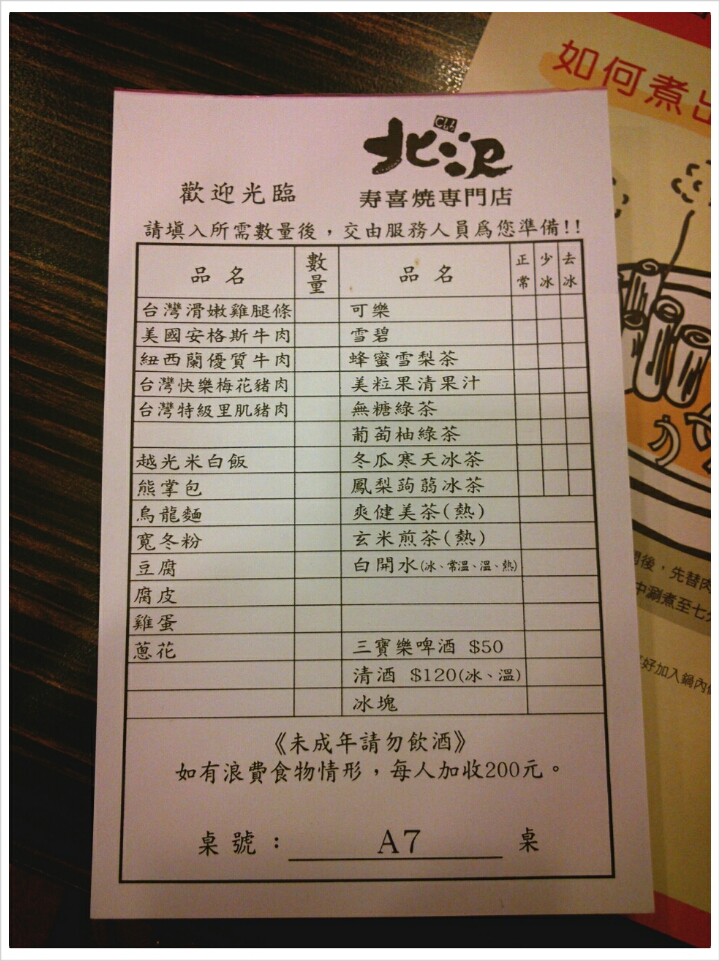 北沢
歡迎光臨 寿喜燒専門店
請填入所需數量後，交由服務人員為您準備!!
品名 數量 品名 正常 少冰 去冰
台灣滑嫩雞腿條 可樂
美國安格斯牛肉 雪碧
紐西蘭優質牛肉 蜂蜜雪梨茶
台灣快樂梅花豬肉 美粒果清果汁
台灣特級里肌豬肉 無糖綠茶
葡萄柚綠茶
越光米白飯 冬瓜寒天冰茶
熊掌包 鳳梨蒟蒻冰茶
烏龍麵 爽健美茶(熱)
寬冬粉 玄米煎茶(熱)
豆腐 白開水(冰、常溫、溫、熱)
腐皮
雞蛋
蔥花 三寶樂啤酒 $50
清酒 $120(冰、溫)
冰塊
《未成年請勿飲酒》
如有浪費食物情形，每人加收200元。
桌號： A7 桌
如何煮出
後，先替肉
中涮煮至七分
好加入鍋內